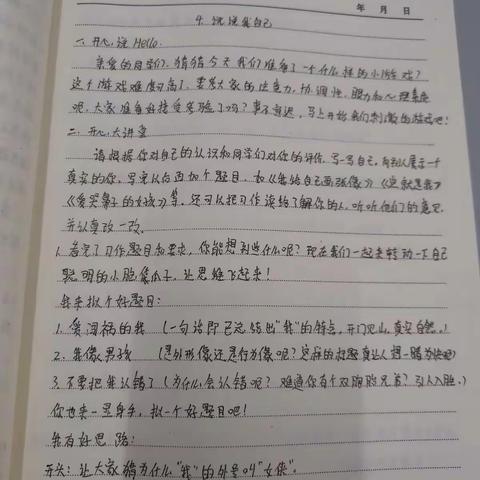 年 月 日
4. 说说我自己
一、开心说 Hello.
亲爱的同学们,猜猜今天我们准备了一个什么样的小游戏?
这个游戏难度可高了,要考大家的注意力,协调性,眼力和心理素质
呢,大家准备好接受考验了吗?事不宜迟,马上开始我们刺激的游戏吧!
二、开心大讲堂
请根据你对自己的认识和同学们对你的评价,写一写自己,向别人展示一个
真实的你,写完以后再加个题目,如《我给自己画张像》《这就是我》
《爱哭鼻子的女孩》等,还可以把习作读给了解你的人,听听他们的意见,
并认真改一改。
1. 看完了习作题目和要求,你能想到些什么呢?现在我们一起来转动一下自己
聪明的小脑袋瓜子,让思维飞起来!
我来拟个好题目:
1. 爱闯祸的我 (一句话即已说出"我"的特点,开门见山,真实自然。)
2. 我像男孩 (是外形像还是行为像呢?这样的标题真让人想一睹为快吧)
3. 不要把我认错了 (为什么会认错呢?难道你有个双胞胎兄弟?引人入胜。)
你也来一显身手,拟一个好题目吧!
我有好思路:
开头:让大家猜为什么"我"的外号叫"女侠"。